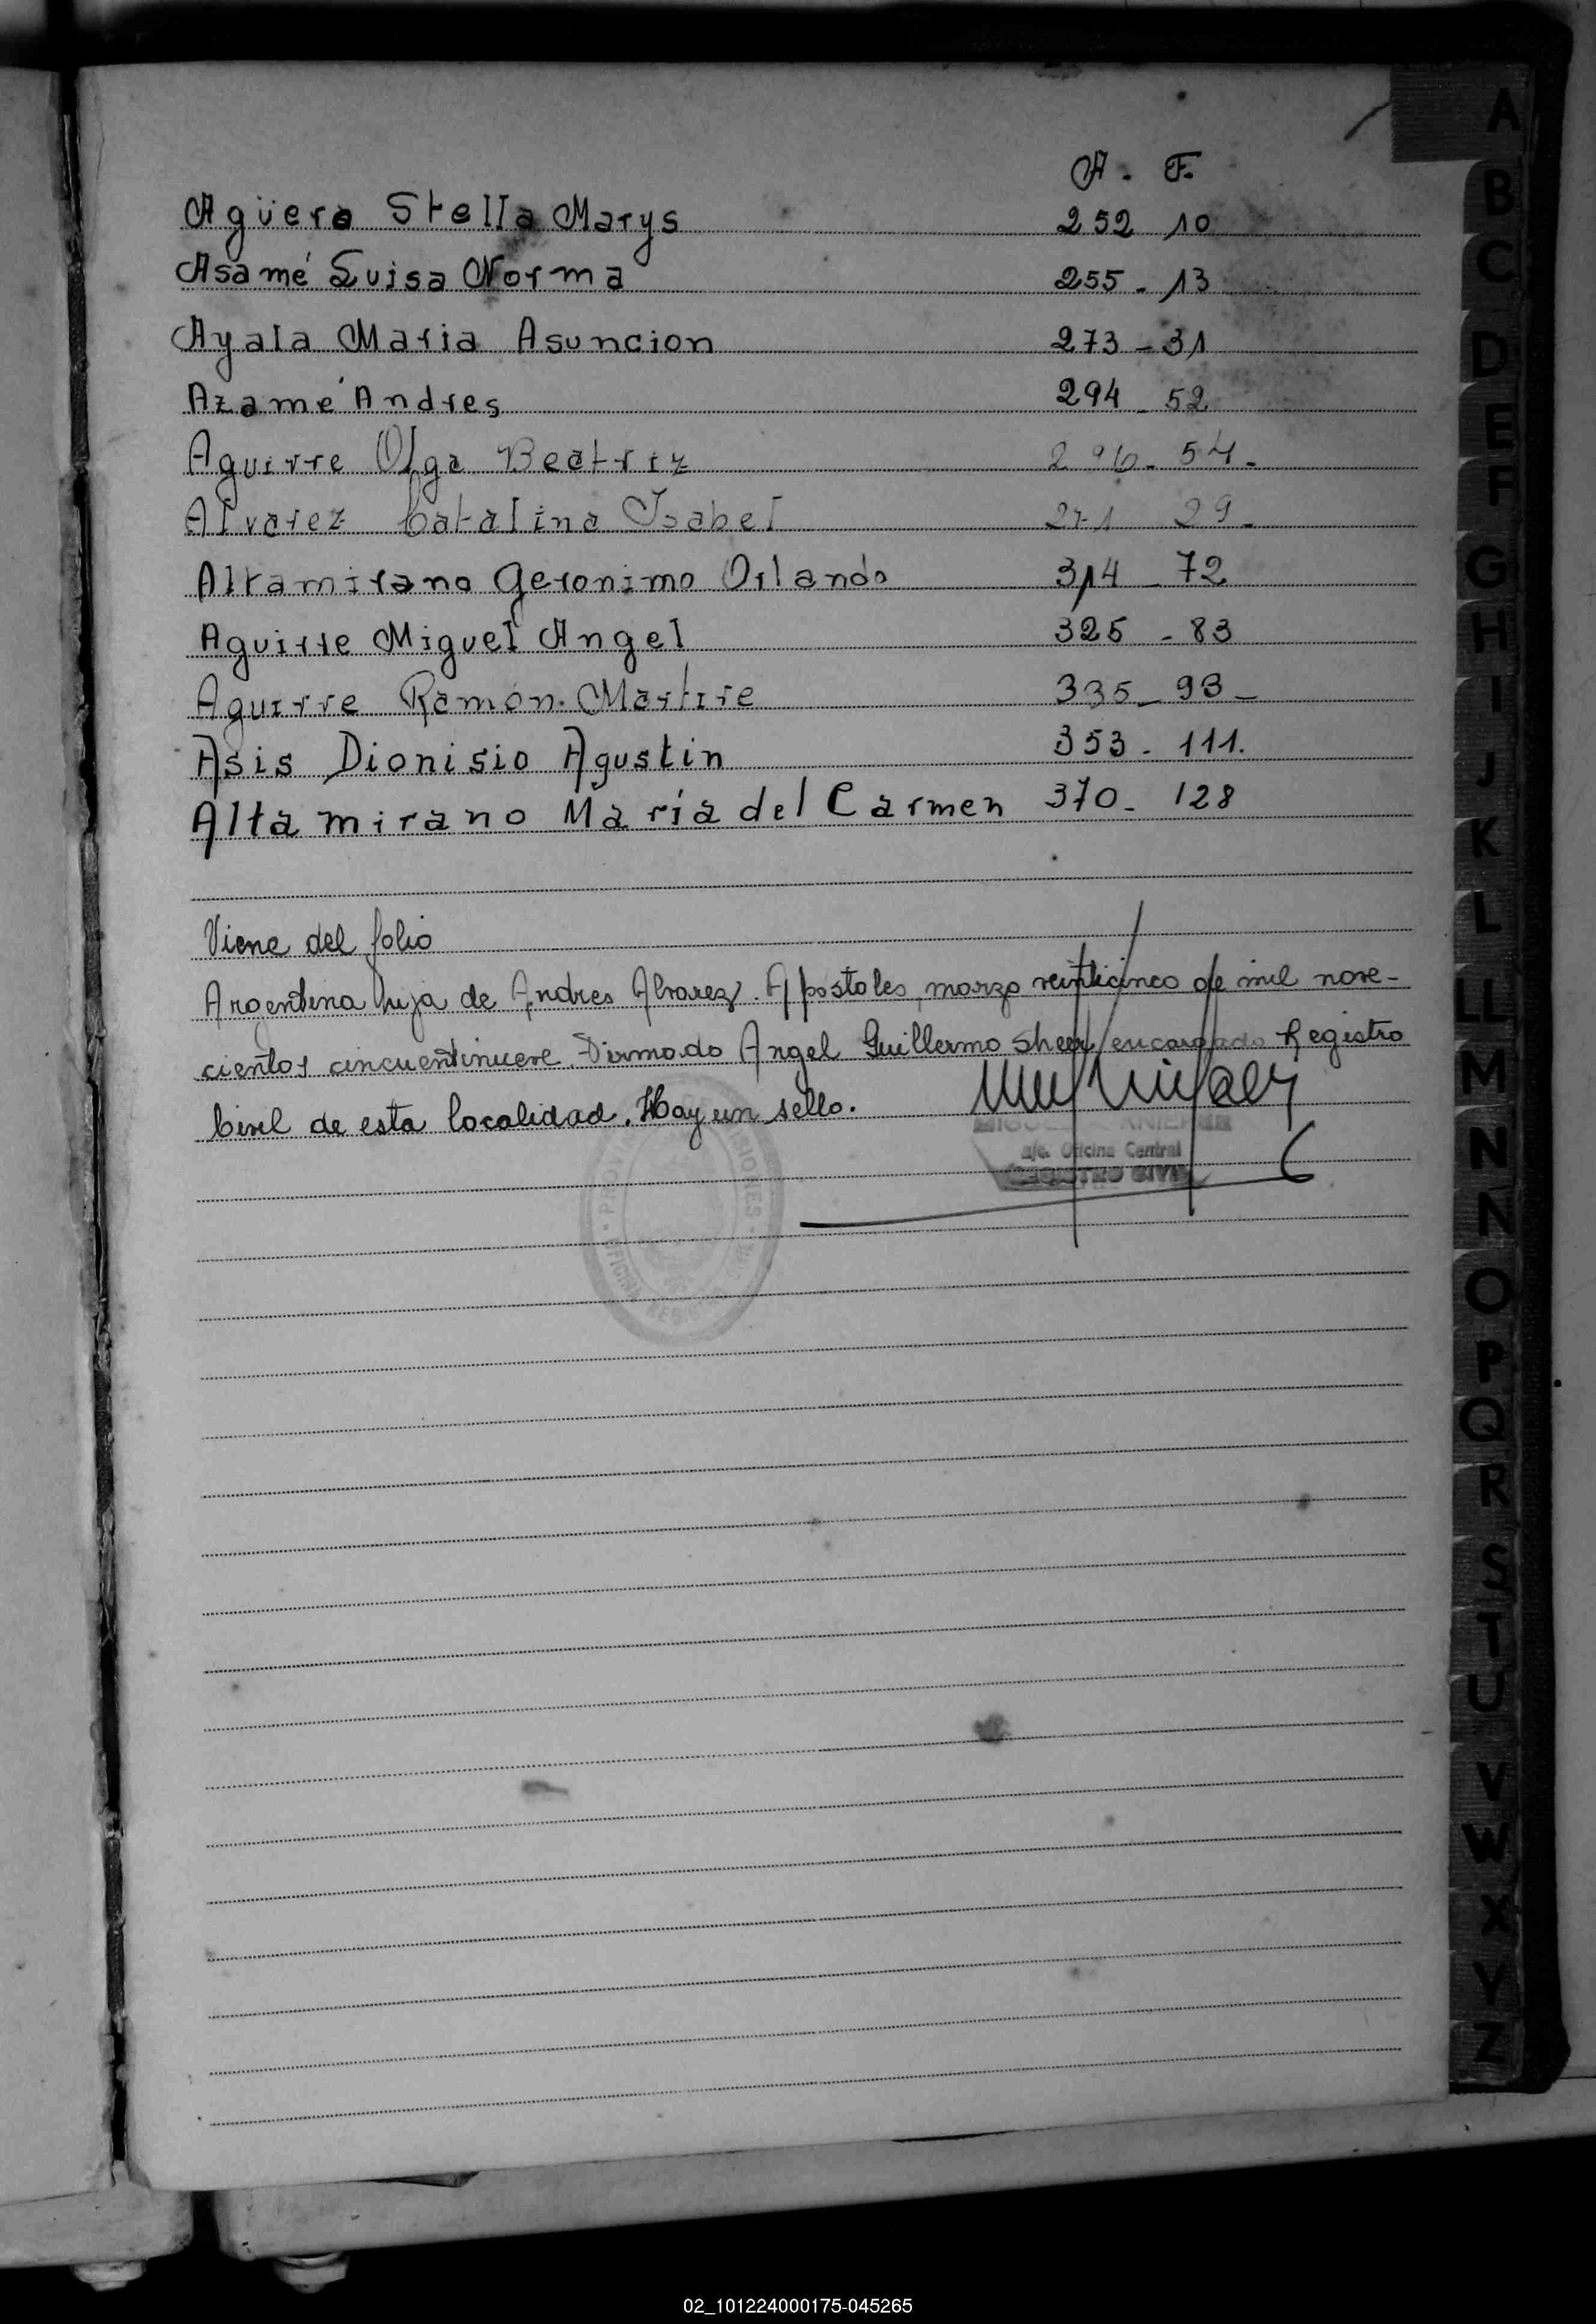 A. F.
Agüero Stella Marys 252 10
Asamé Luisa Norma 255 - 13
Ayala Maria Asuncion 273 - 31
Azamé Andres 294 - 52
Aguirre Olga Beatriz 296 - 54 -
Alvarez Catalina Isabel 271 29 -
Altamirano Geronimo Orlando 314 - 72
Aguirre Miguel Angel 325 - 83
Aguirre Ramón Martire 335 - 93 -
Asis Dionisio Agustin 353 - 111.
Altamirano María del Carmen 370 - 128
Viene del folio
Argentina hija de Andres Alvarez. Apostoles, marzo veinticinco de mil nove-
cientos cincuentinueve. Firmado Angel Guillermo encargado Registro
Civil de esta localidad. Hay un sello.
a/c. Oficina Central
REGISTRO CIVIL
A
B
C
D
E
F
G
H
I
J
K
L
LL
M
N
Ñ
O
P
Q
R
S
T
U
V
W
X
Y
Z
02_101224000175-045265